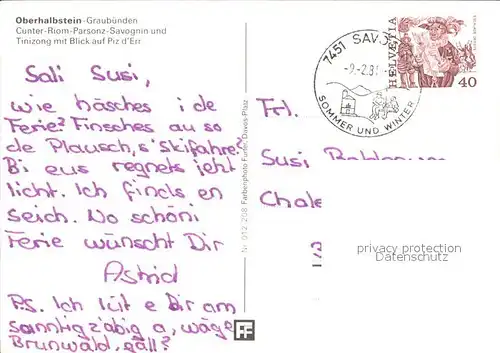 Oberhalbstein-Graubünden
Cunter-Riom-Parsonz-Savognin und
Tinizong mit Blick auf Piz d'Err
Sali Susi,
wie häsches i de
Ferie? Finsches au so
de Plausch, s'Skifahre?
Bi eus regnets jetz
licht. Ich finds en
Seich. No schöni
Ferie wünscht Dir
Astrid
P.S. Ich lüt e Dir am
sanntig z'abig a, wäge
Brunwald, gäll?
Nr. 012 208 Farbenphoto Furter, Davos-Platz
7451 SAV
-9.-2.8
SOMMER UND WINTER
HELVETIA
40
Frl.
Susi
Chale
privacy protection
Datenschutz